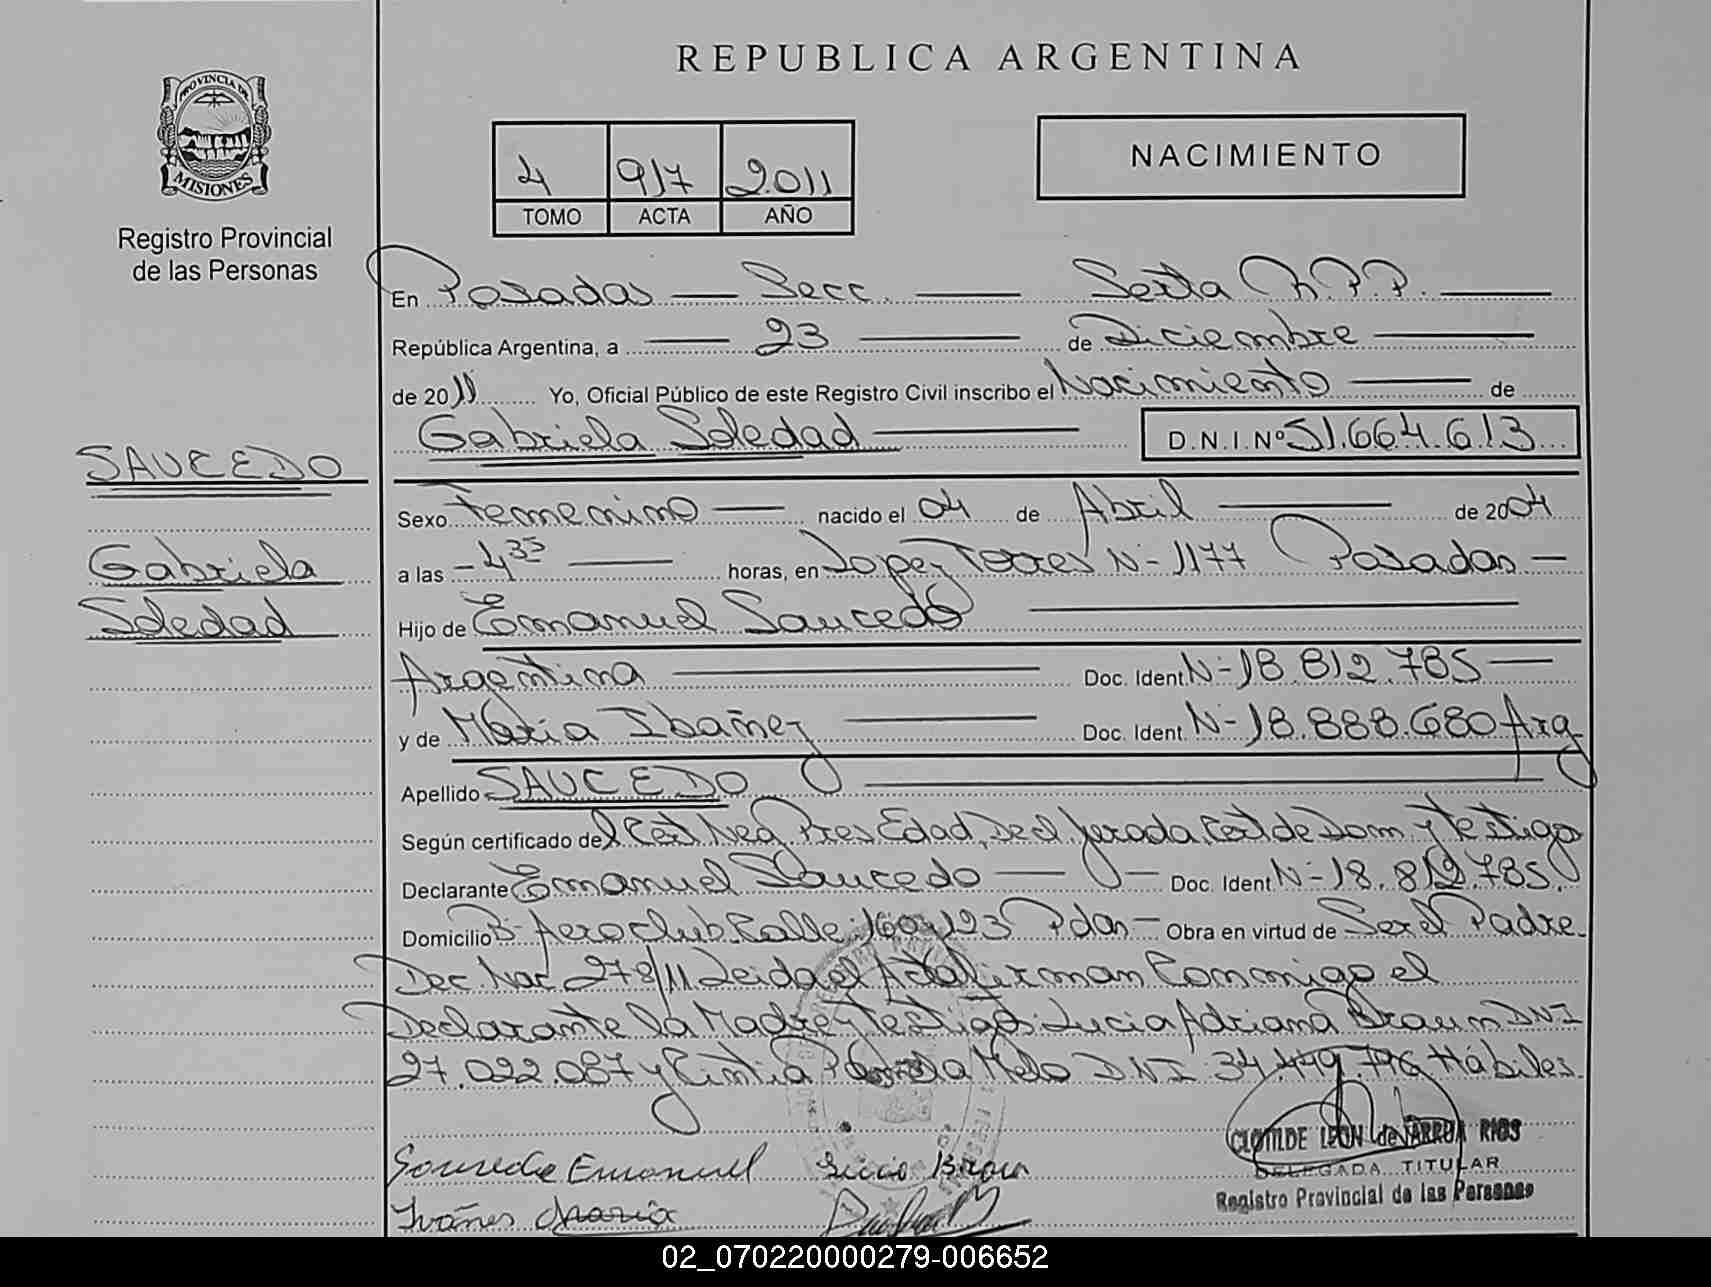 REPUBLICA ARGENTINA
PROVINCIA DE
MISIONES
Registro Provincial
de las Personas
4 917 2011
TOMO ACTA AÑO
NACIMIENTO
En Posadas Secc. Sexta R.P.P.
República Argentina, a 23 de Diciembre
de 2011 Yo, Oficial Público de este Registro Civil inscribo el Nacimiento de
Gabriela Soledad D.N.I Nº 51.664.613
SAUCEDO
Sexo Femenino nacido el 04 de Abril de 2004
Gabriela
Soledad
a las - 4 35 horas, en Lopez Torres N- 1177 Posadas
Hijo de Emanuel Saucedo
Argentina Doc. Ident N- 18.812.785
y de Maria Ibañez Doc. Ident N- 18.888.680 Arg
Apellido SAUCEDO
Según certificado del Cert Neg. Pres Edad, Decl. Jurada Cert de Dom. y testigo
Declarante Emanuel Saucedo Doc. Ident N- 18.812.785.
Domicilio B- Aeroclub Calle 160 y 123 Pdas Obra en virtud de Ser el Padre
Dec. Nac 278/11 Leida el Acta firman Conmigo el
Declarante la Madre y Testigos: Lucia Adriana Braun DNI
27.022.087 y Cintia Melo DNI 34.449.796 Hábiles.
CLOTILDE LEON de BARRUA RIOS
DELEGADA TITULAR
Registro Provincial de las Personas
Saucedo Emanuel Lucia Braun
Ivañes Maria
02_070220000279-006652